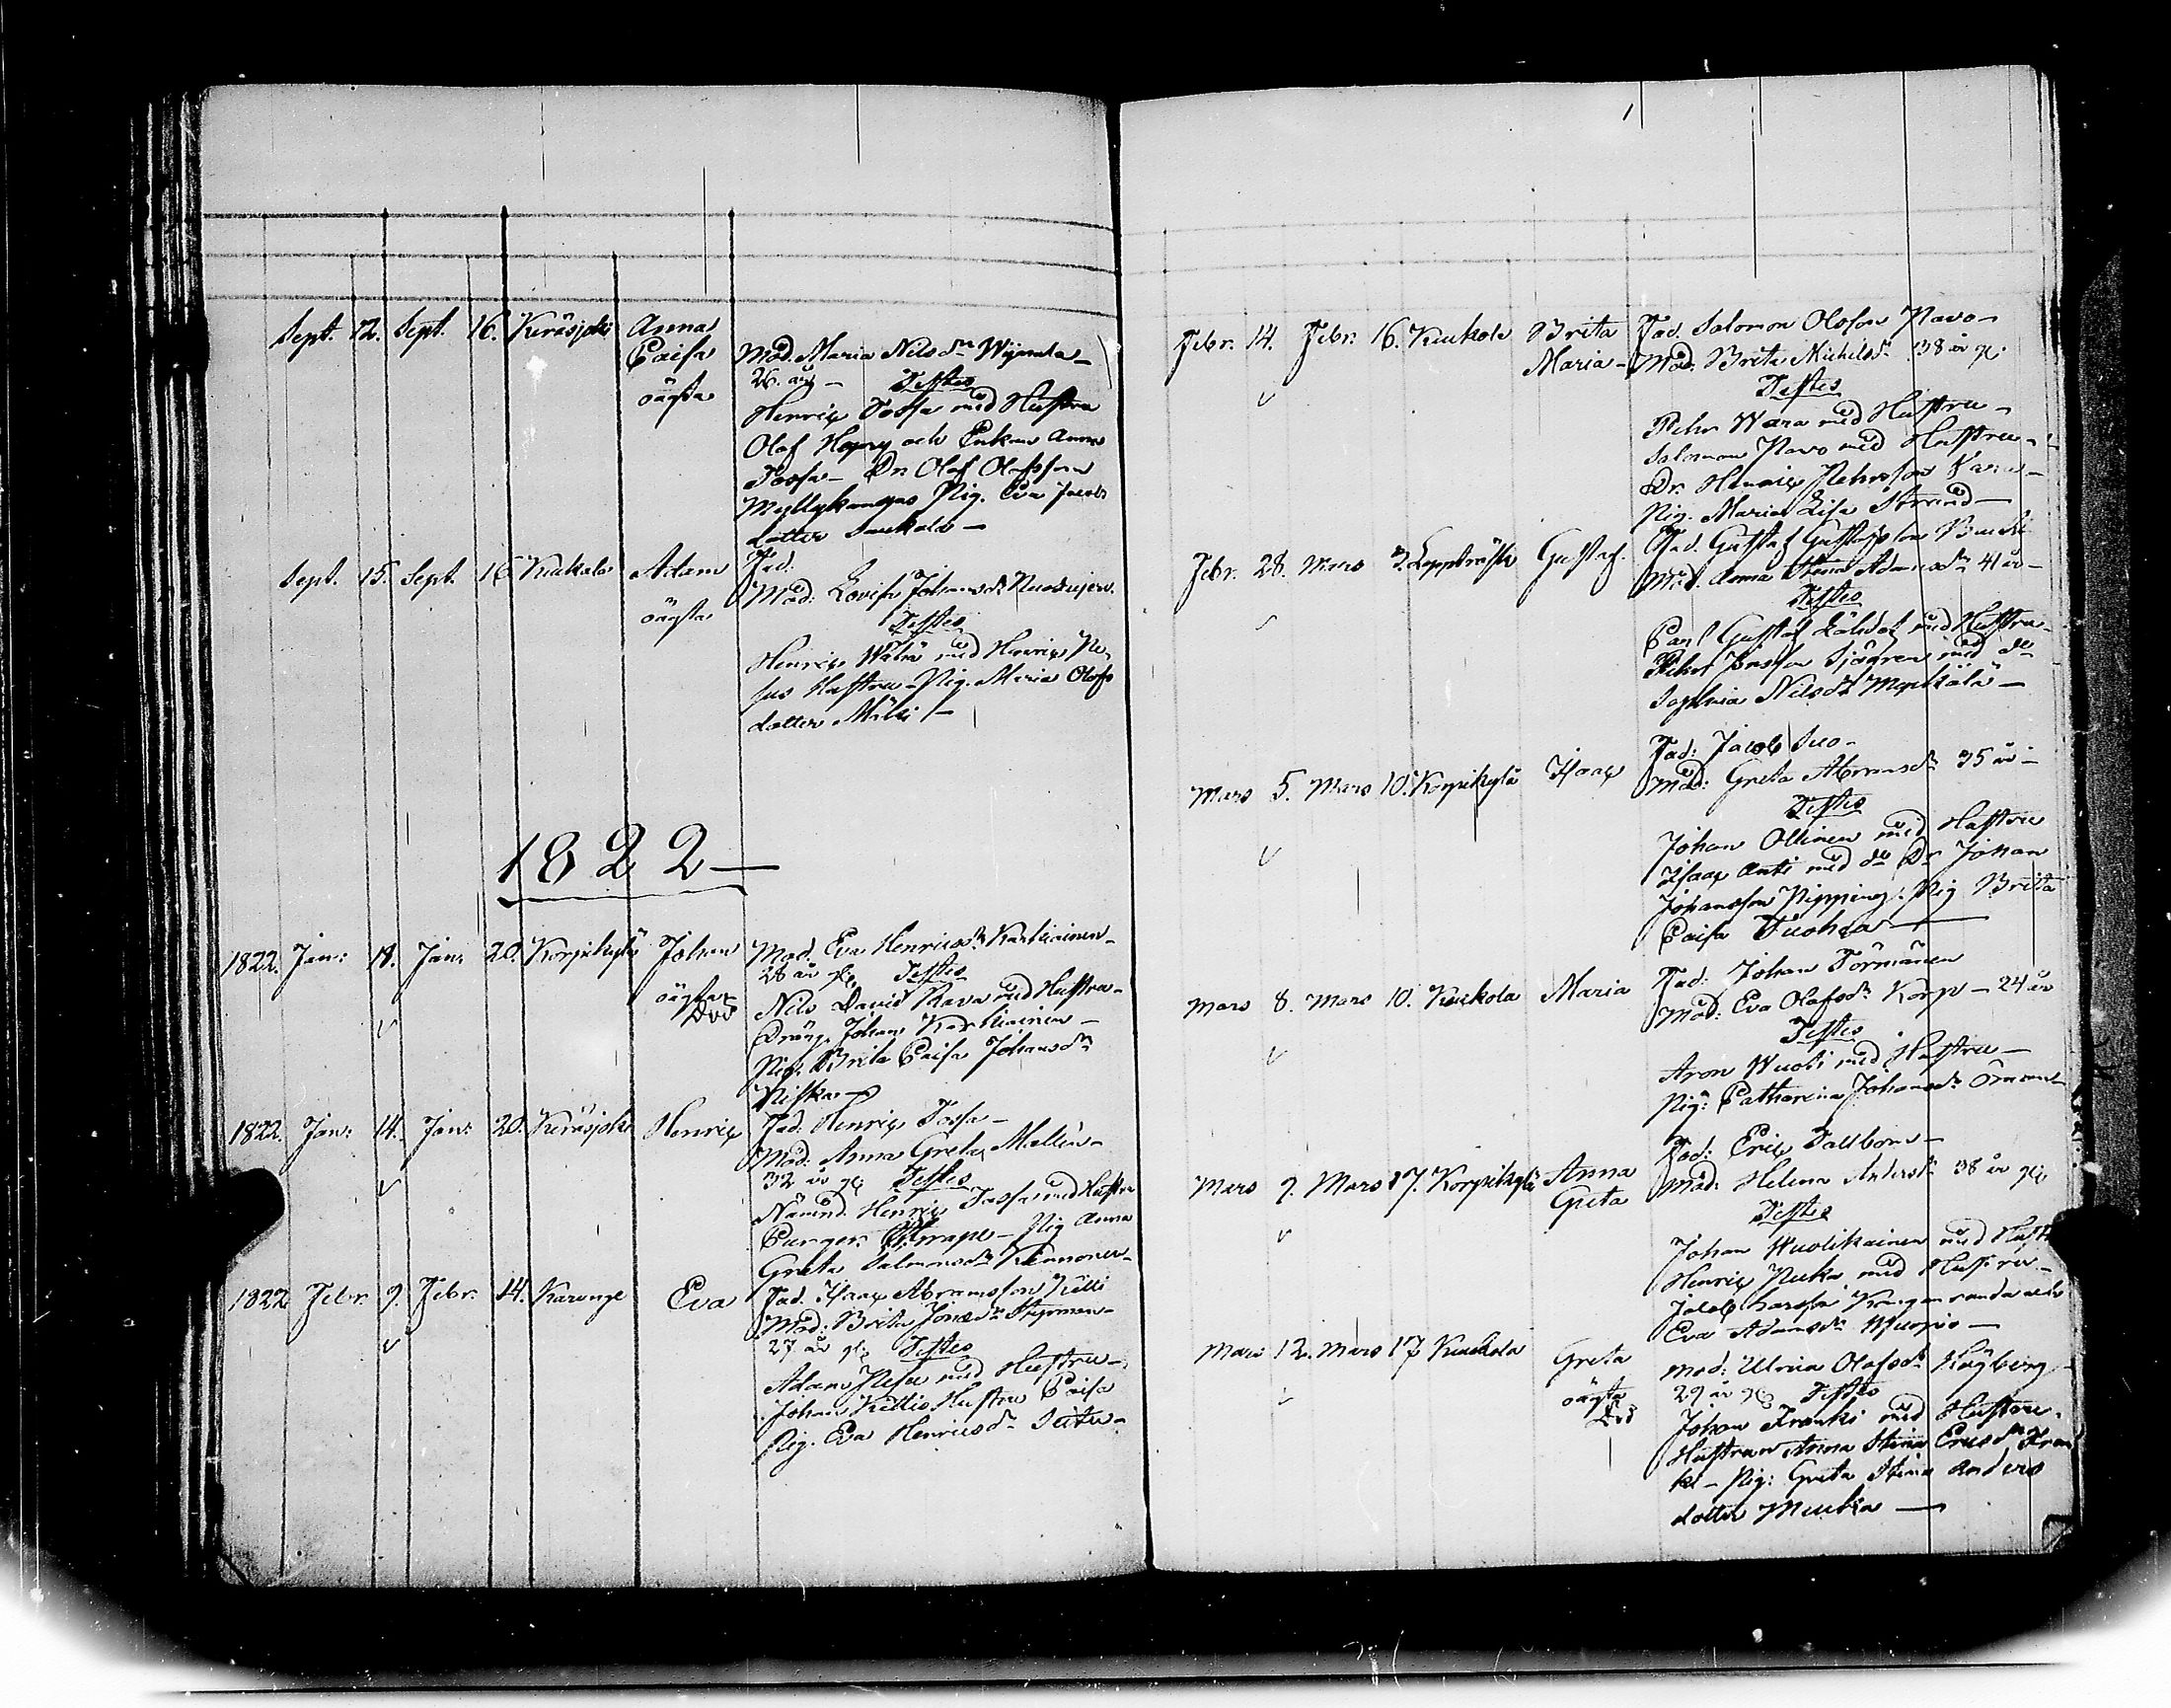 Sept. 12. Sept. 16. Keräsjoki Anna
Caisa
oägta
Mod. Maria Nilsdr
26. år — Testes
Henric Tossa med Hustru
Olof och Enkan Anna
Tossa — Dr. Olof Olofsson
Myllykangas Pig. Eva Jacobs
dotter —
Sept. 15. Sept. 16. Kuckola Adam
oägta
Fad:
Mod: Lovisa Johansdr
Testes
Henric med Henric
Hustru — Pig. Maria Olofs
dotter Mäki —
1822 —
1822. Jan: 18. Jan: 20. Korpikylä Johan
oägta
Död
Mod. Eva Henricsdr Karhiainen —
28 år gl. Testes
Nils David Rava med Hustru —
Dräng. Johan Karhiainen —
Pig. Brita Caisa Johansdr
Niska —
1822. Jan: 14. Jan: 20. Keräsjoki Henric
Fad. Henric Tossa —
Mod: Anna Greta —
32 år gl. Testes
Nämnd. Henric Tossa med Hustru
— Pig Anna
Greta Salmonsdr Kinnonen —
1822 Febr. 9. Febr. 14. Karunge Eva
Fad. Isaac Abramsson Källi
Mod: Brita Jönsdr —
27 år gl. Testes
Adam med Hustru —
Johan Hustru Caisa
Pig. Eva Henricsdr —
Febr. 14. Febr. 16. Kuckola Brita
Maria —
Fad. Salomon Olofson Navo —
Mod: Brita Michelsdr 38 år gl.
Testes
Pehr Wara med Hustru —
Salomon Navo med Hustru —
Dr. Henric Pehrsson Vara —
Pig. Maria Lisa —
Febr. 28. Mars 3. Lappträsk Gustaf.
Fad. Gustaf Gustafsson
Mod. Anna Stina Adamsdr 41 år —
Testes
Carl Gustaf med Hustru —
Pehr Jonsson Sjögren med do
Sophia Nilsdr —
Mars 5. Mars 10. Korpikylä Isaac
Fad: Jacob Suo —
Mod: Greta Abramsdr 35 år —
Testes
Johan Ollinen med Hustru
Isaac Anti med do Dr Johan
Johansson Nipping: Pig Brita
Caisa —
Mars 8. Mars 10. Kuckola Maria
Fad: Johan Törmänen
Mod: Eva Olofsdr Korpo — 24 år
Testes
Aron med Hustru —
Pig: Catharina Johansdr
Mars 9. Mars 17. Korpikylä Anna
Greta
Fad: Eric Tallbom —
Mod: Helena Andersdr 38 år gl.
Testes
Johan Wuolikainen med
Henric med Hustru —
Jacob Larsson Kangas
Eva Adamsdr Wuopio —
Mars 12. Mars 17 Kuckola Greta
oägta
Död
Mod: Ulrica Olofsdr Högberg
29 år gl. Testes
Johan Franki med Hustru.
Hustrun Anna Stina Ericsdr Fran
ki — Pig: Greta Stina Anders
dotter —